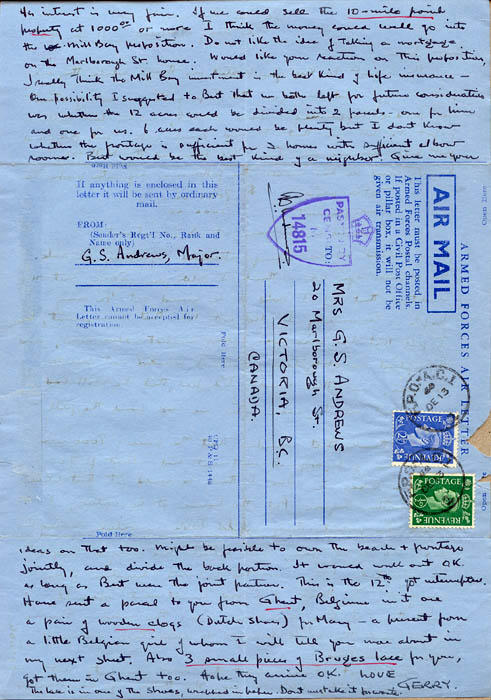 4% interest is very fair. If we could sell the 10-mile point
property at 1000.00 or more I think the money could well go into
the Mill Bay proposition. Do not like the idea of taking a mortgage
on the Marlborough St. home. Would like your reaction on this proposition,
I really think the Mill Bay investment is the best kind of life insurance —
One possibility I suggested to Bert that we both left for future consideration
was whether the 12 acres could be divided into 2 parcels - one for him
and one for us. 6 acres each would be plenty but I don't know
whether the frontage is sufficient for 2 homes with sufficient elbow
room. Bert would be the best kind of a neighbor. Give me your
If anything is enclosed in this
letter it will be sent by ordinary
mail.
FROM:
(Sender's Regt'l No., Rank and
Name only)
G.S. Andrews, Major.
This Armed Forces Air
Letter cannot be accepted for
registration.
Fold Here
ARMED FORCES AIR LETTER
AIR MAIL
This letter must be posted in
Armed Forces Postal channels.
If posted in a Civil Post Office
or pillar box, it will not be
given air transmission.
PASSED BY
CENSOR
14815
MRS G.S. ANDREWS
20 Marlborough St.
VICTORIA, B.C.
CANADA.
POSTAGE
REVENUE
POSTAGE
REVENUE
Fold Here
ideas on that too. Might be feasible to own the beach + frontage
jointly, and divide the back portion. It would work out OK.
as long as Bert were the joint partner. This is the 12th yet uninterrupted.
Have sent a parcel to you from Ghent, Belgium in it are
a pair of wooden clogs (Dutch shoes) for Mary - a present from
a little Belgian girl of whom I will tell you more about in
my next sheet. Also 3 small pieces of Bruges lace for you,
got them in Ghent too. Hope they arrive OK. LOVE
GERRY.
The lace is in one of the shoes, wrapped in paper. Don't mistake it for waste.